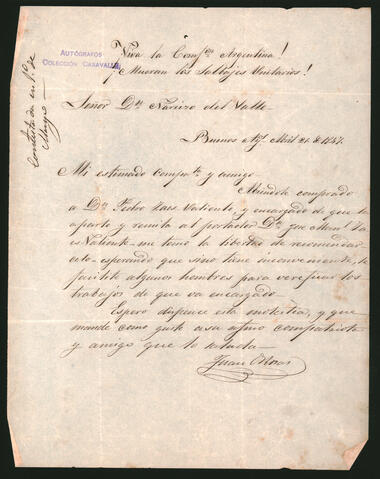 AUTÓGRAFOS
COLECCIÓN CARAVALLE
Contestada en 1º. de
Mayo
¡Viva la Confn. Argentina!
¡Mueran los Salbajes Unitarios!
Señor Dn. Narcizo del Valle
Buenos Ays. Abril 21. de 1847.
Mi estimado Compte. y amigo
Habiendole comprado
a Dn. Pedro Saes Valiente y encargado de que la
aparte y remita al portador Dn. José Man.l Sa
es Valiente me tomo la libertad de recomendar
celo esperando que sino tiene inconveniente, le
facilite algunos hombres para verificar los
trabajos de que va encargado.
Espero dispence esta molestia, y que
mande como guste a su afmo compatriota
y amigo que lo saluda
Juan